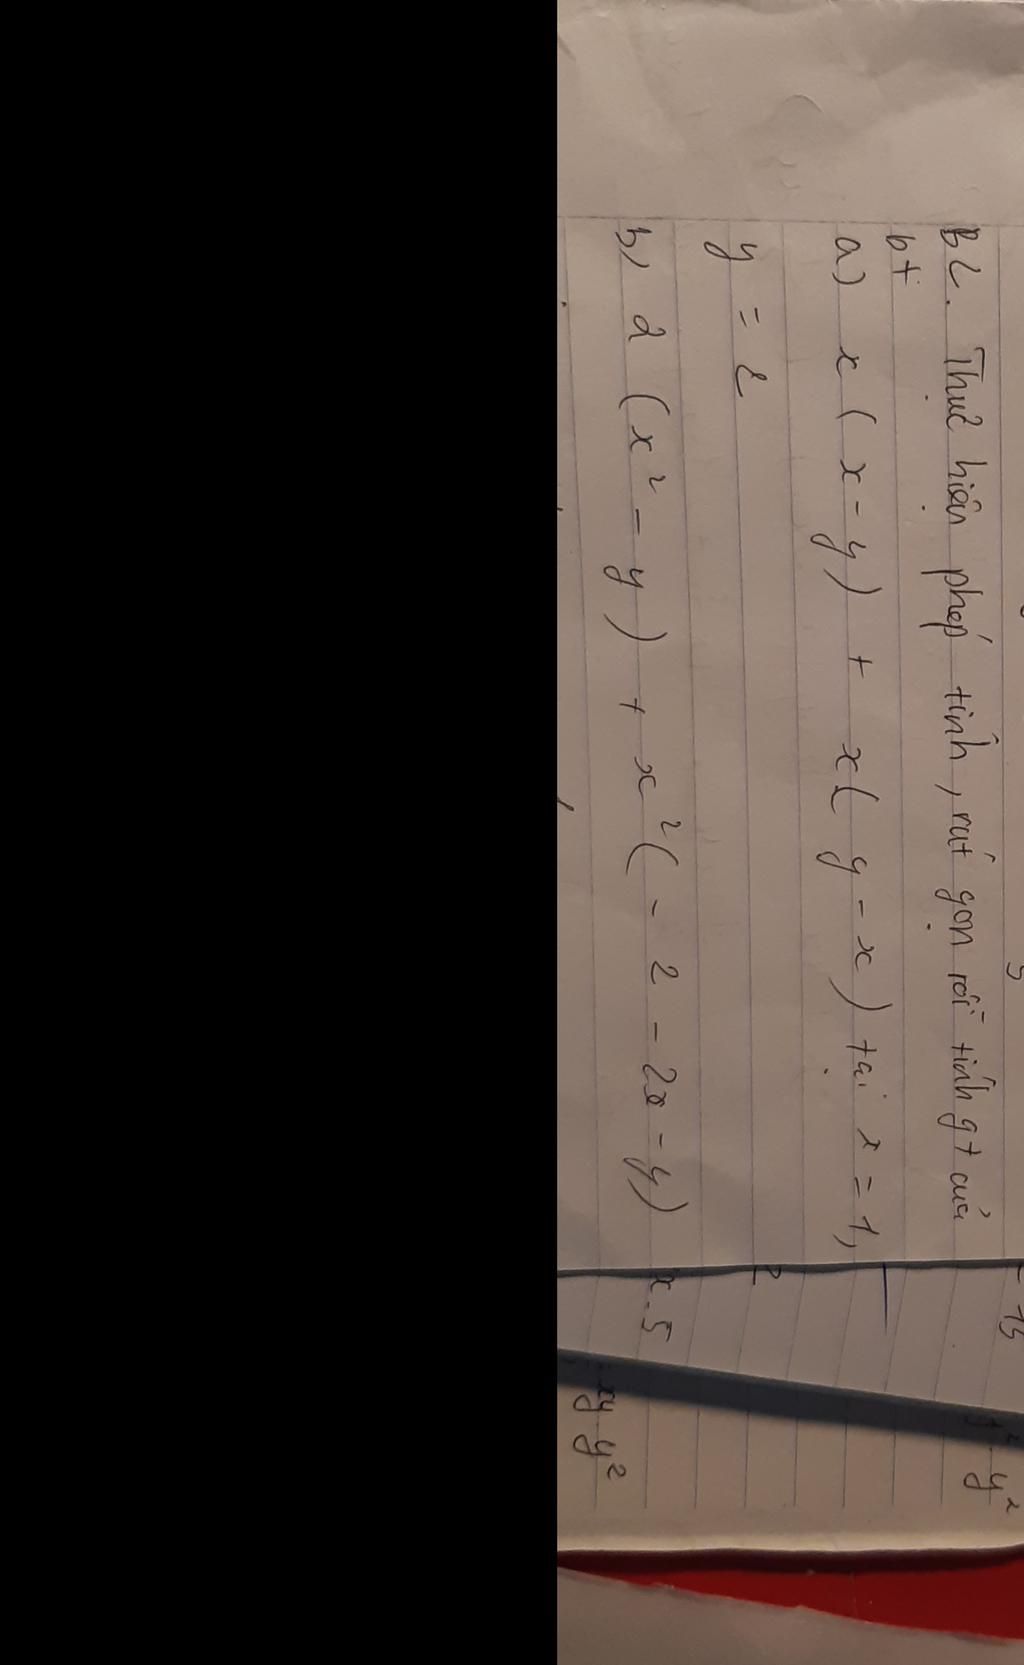 B2. Thực hiện phép tính, rút gọn rồi tính gt của
bt
a) x ( x - y ) + x ( y - x ) tại x = 1,
y = 2
b) 2 ( x² - y ) + x² ( - 2 - 2x - y )
x. 5
xy y²
15
y²